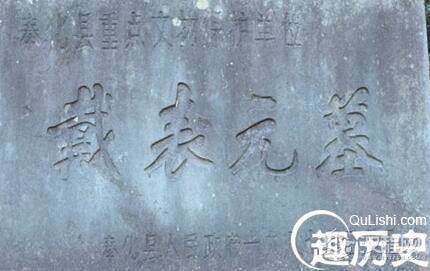 奉化县重点文物保护单位
戴表元墓
奉化县人民政府一
QuLishi.com
趣历史